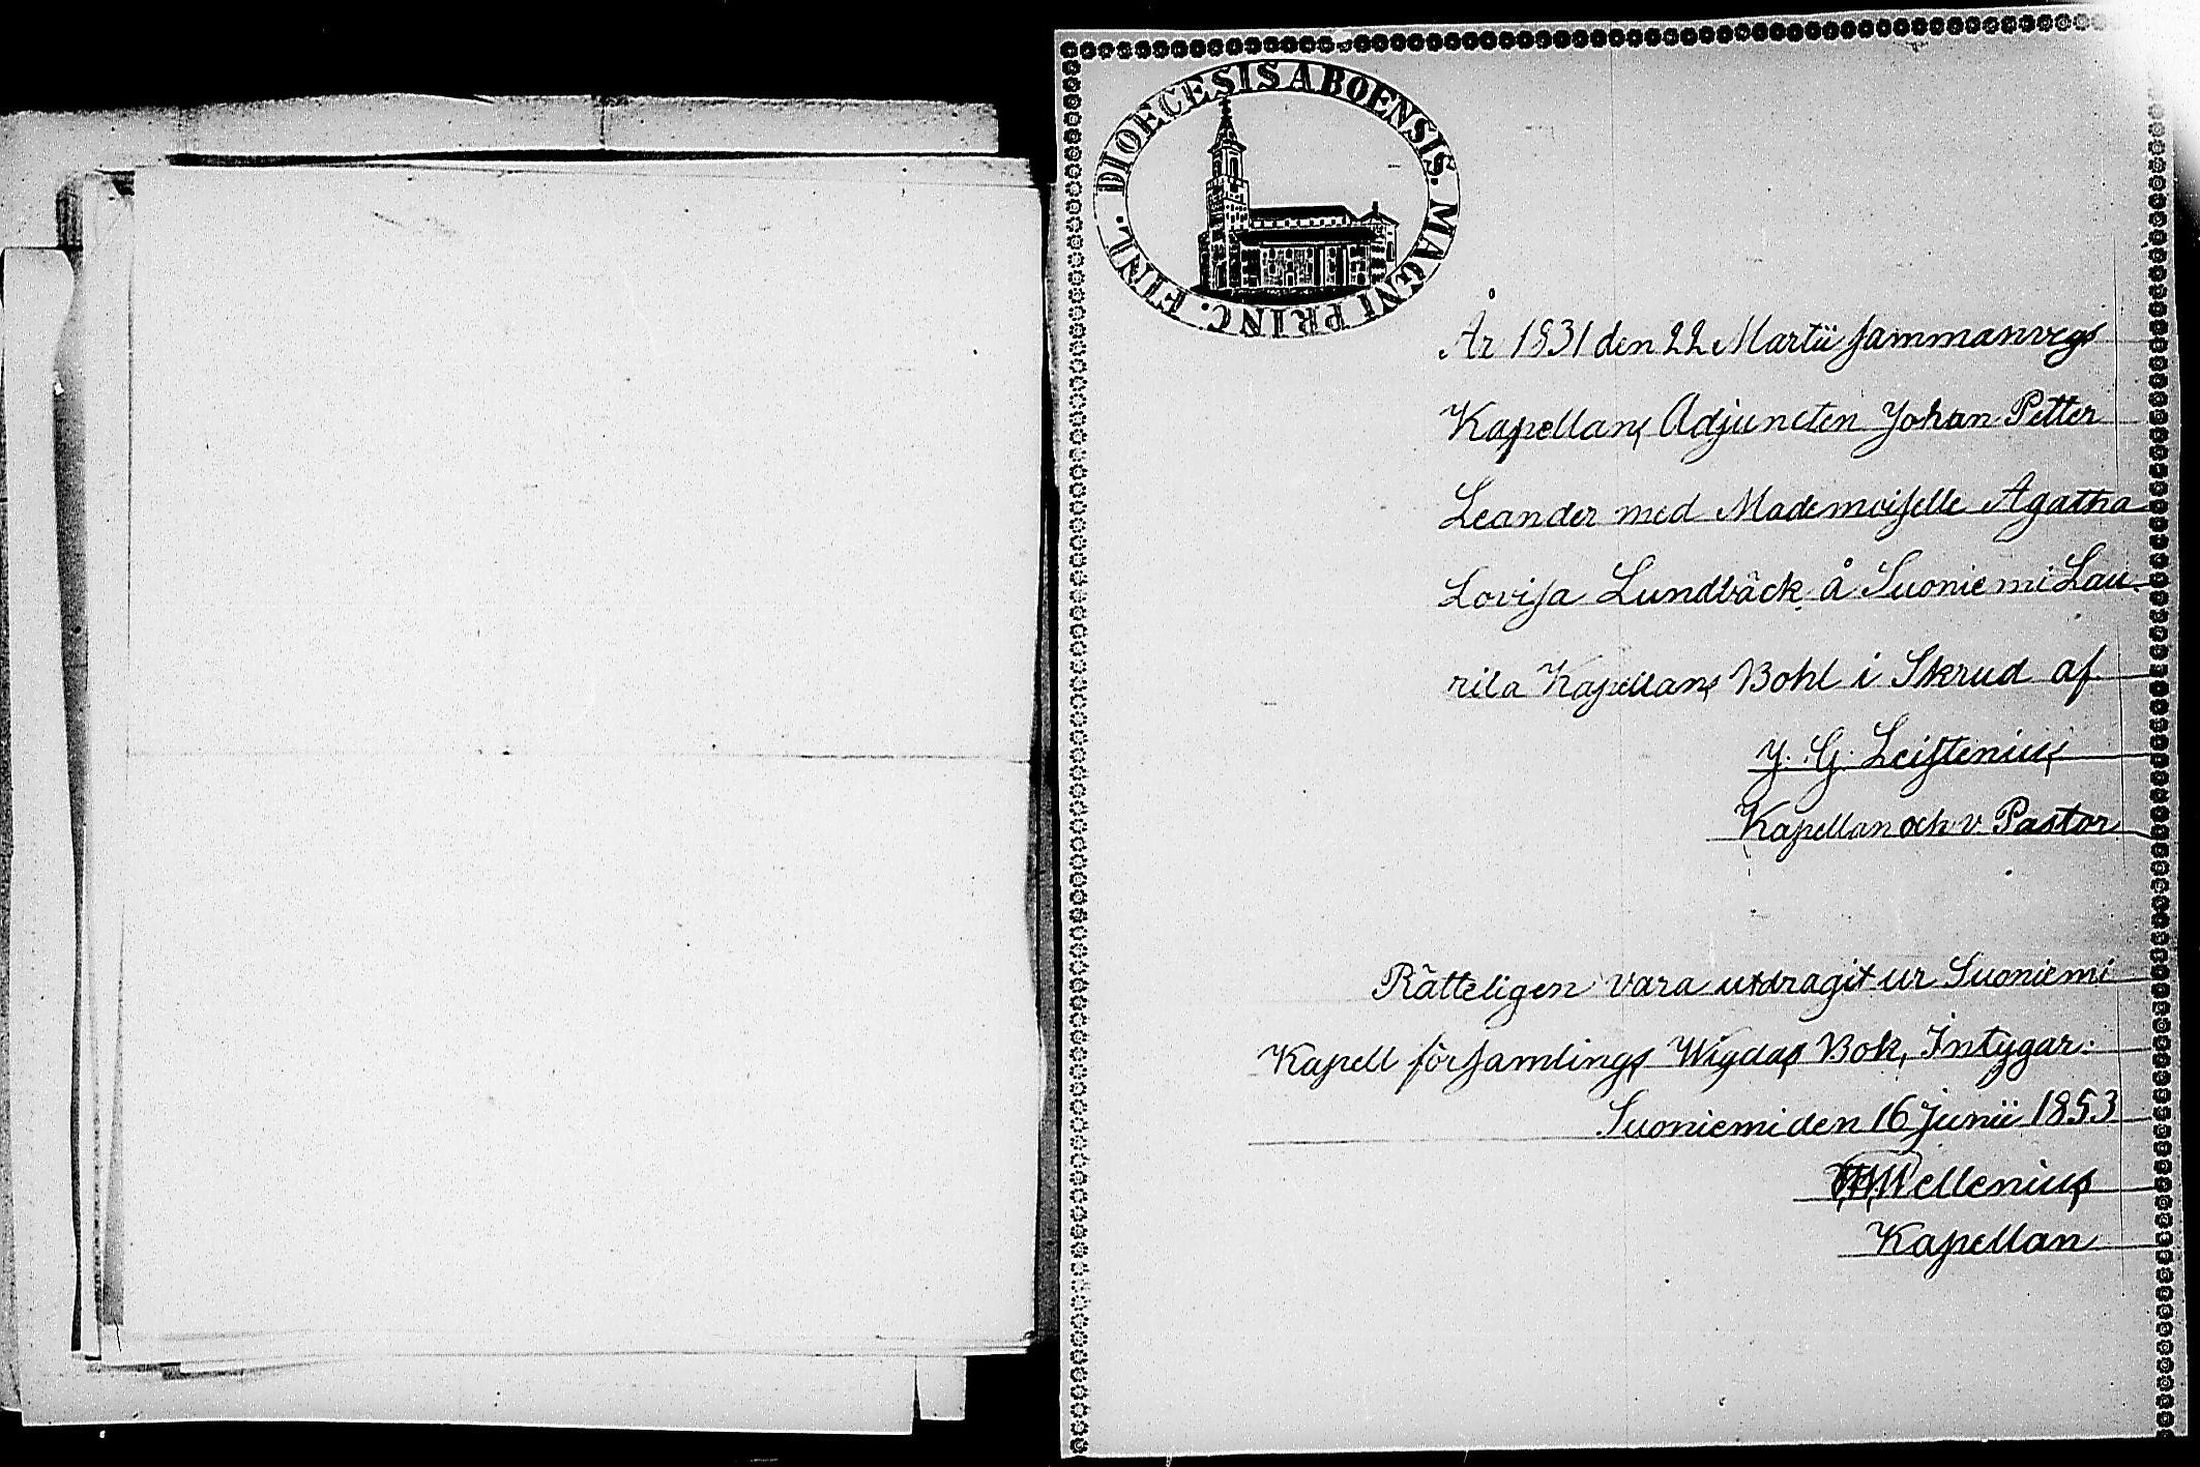 DIOECESIS ABOENSIS. MAGNI PRINC. FINL.
År 1831 den 22 Martii sammanvegs
Kapellans Adjuncten Johan Petter
Leander med Mademoiselle Agatha
Lovisa Lundbäck å Suoniemi Lau-
rila Kapellans Bohl i Skrud af
J. G. Leistenius
Kapellan och v. Pastor
Rätteligen vara utdragit ur Suoniemi
Kapell församlings Wigdas Bok, Intygar:
Suoniemi den 16 Junii 1853
Wellenius
Kapellan